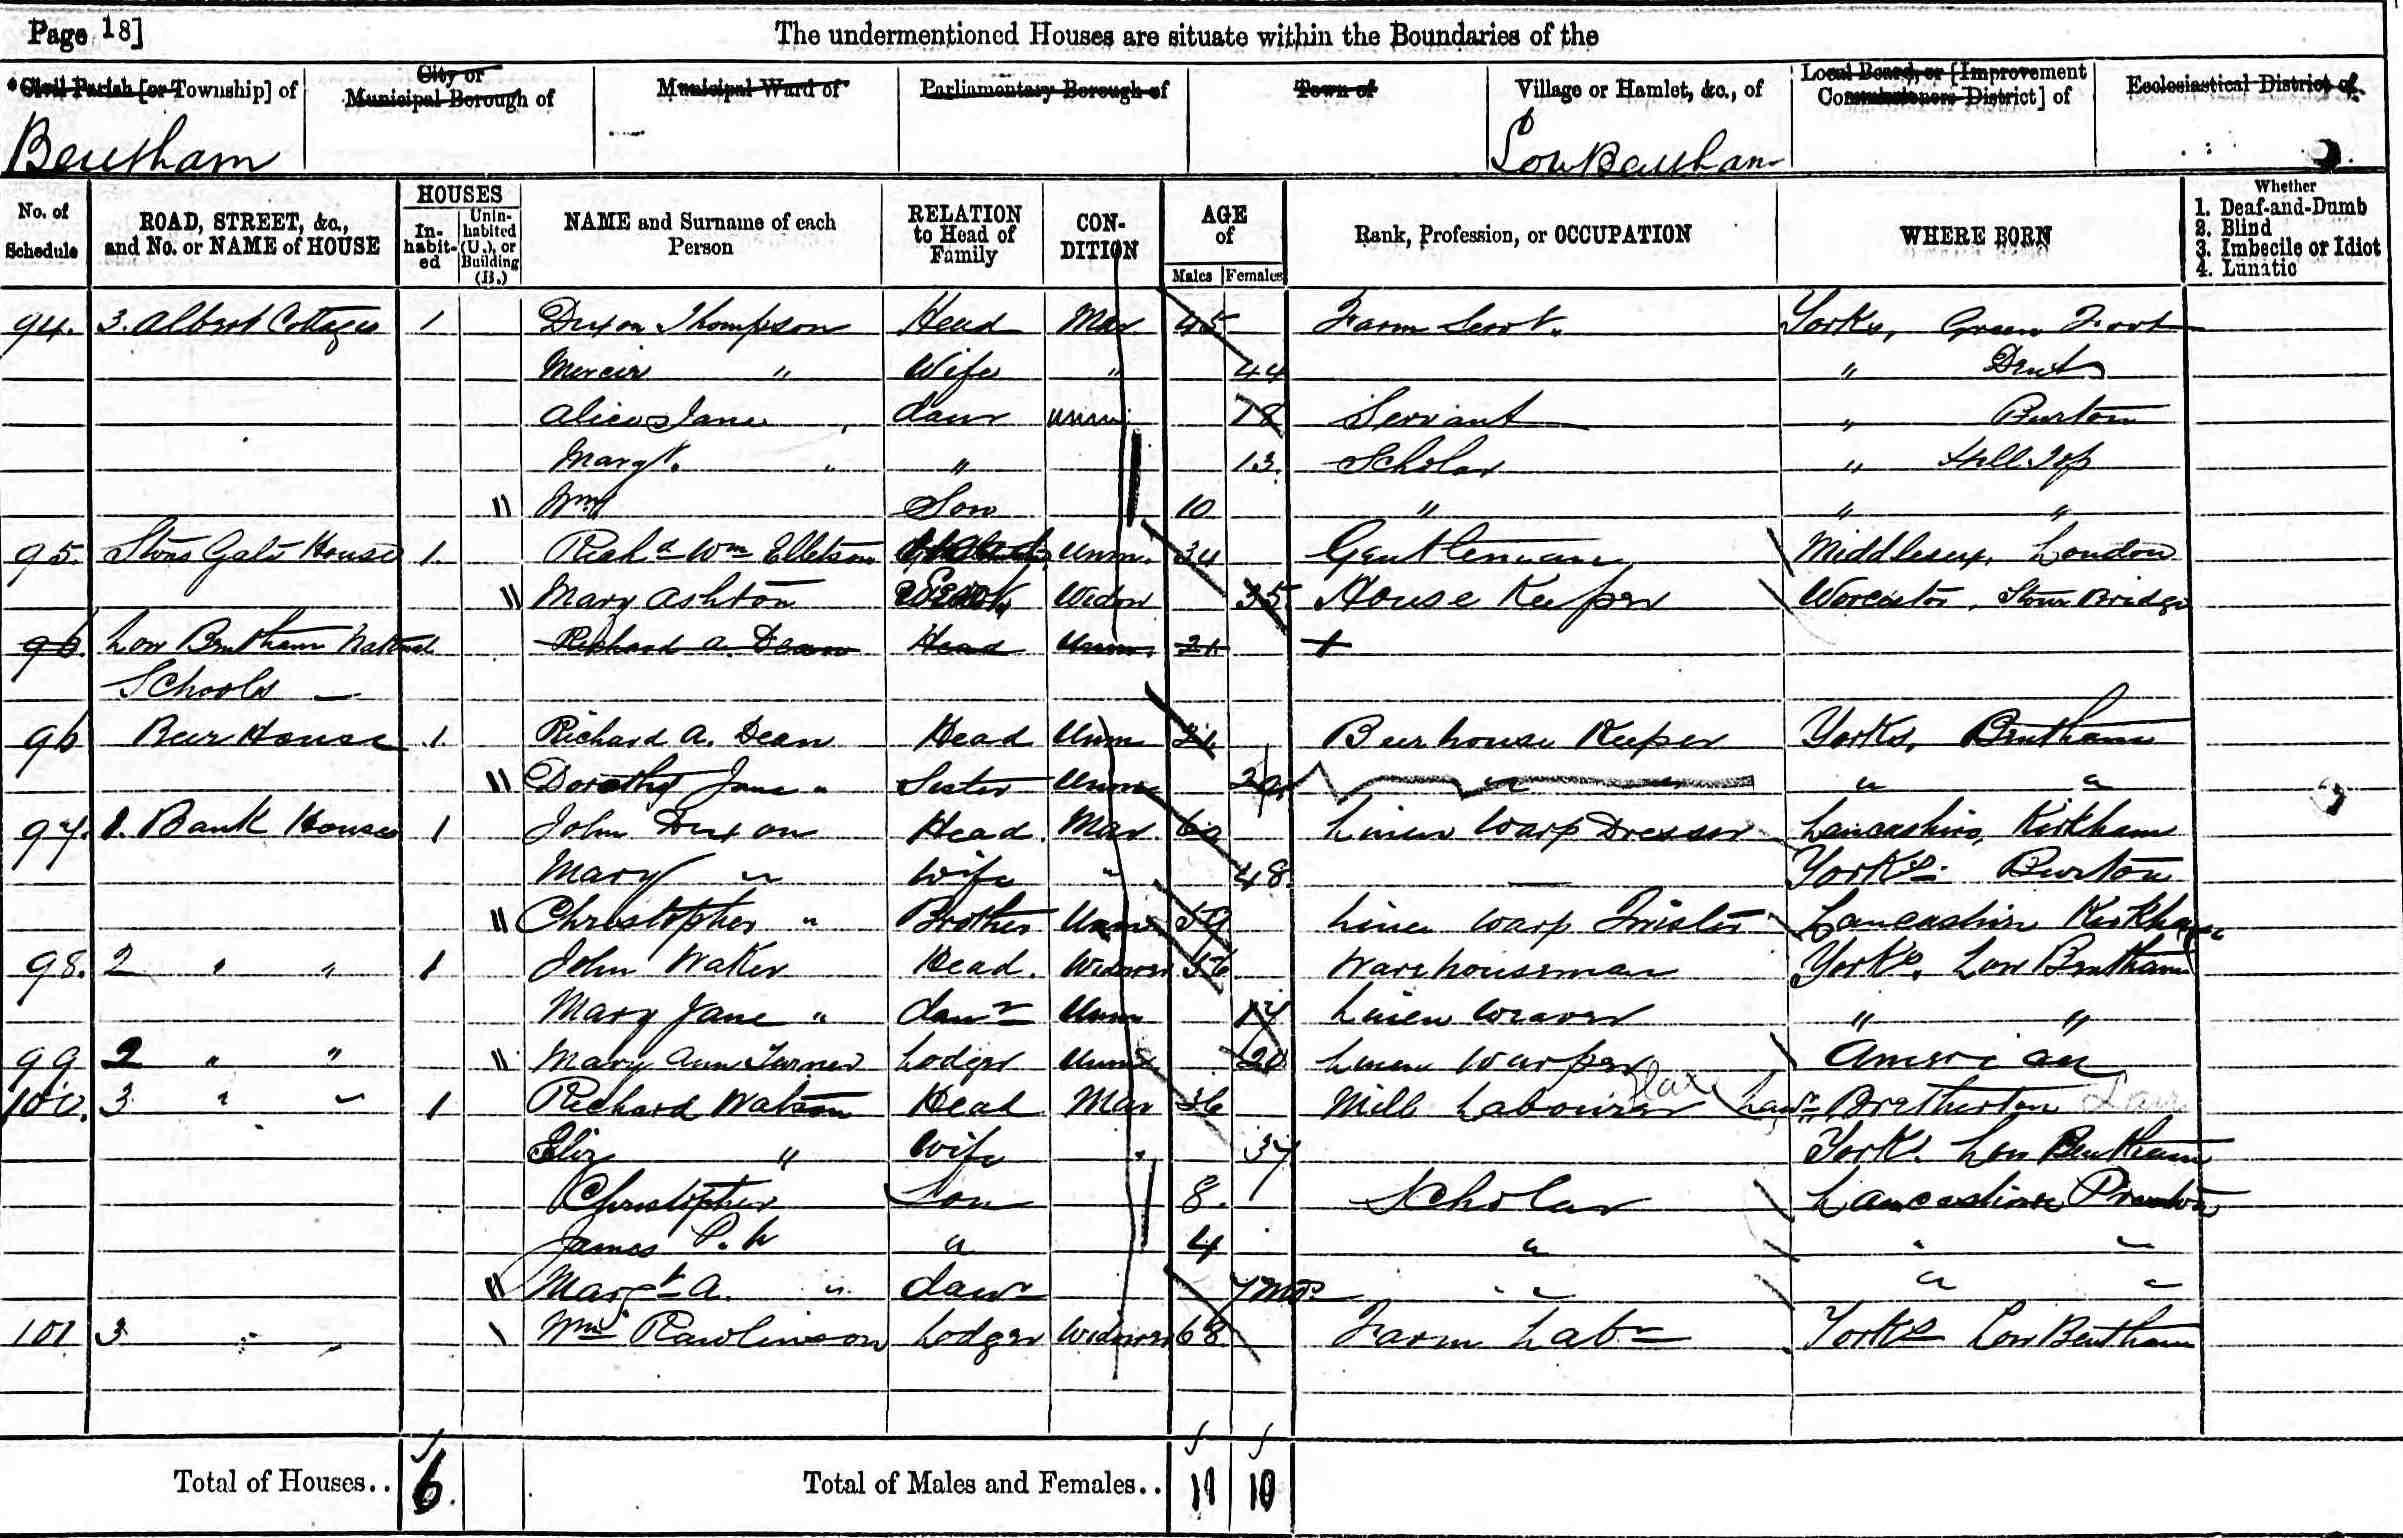 Page 18]
The undermentioned Houses are situate within the Boundaries of the
Civil Parish [or Township] of
City or Municipal Borough of
Municipal Ward of
Parliamentary Borough of
Town of
Village or Hamlet, &c., of
Local Board, or [Improvement Commissioners District] of
Ecclesiastical District of
Bentham
Low Bentham
No. of Schedule
ROAD, STREET, &c., and No. or NAME of HOUSE
HOUSES
In-habit-ed
Unin-habited (U.), or Building (B.)
NAME and Surname of each Person
RELATION to Head of Family
CON-DITION
AGE of
Males
Females
Rank, Profession, or OCCUPATION
WHERE BORN
Whether
1. Deaf-and-Dumb
2. Blind
3. Imbecile or Idiot
4. Lunatic
94. 3. Albert Cottages 1 Dixon Thompson Head Mar 45 Farm Servt. Yorks,
" Wife " 44 " Dent
Alice Jane daur Unm. 18 Servant " Burton
Margt. " " 13. Scholar " Hill Top
Wm Son 10 " " "
95. Stone Gate House 1. Richd Wm Elletson Unm. 34 Gentleman Middlesex, London
Mary Ashton Servt. Widow 35 House Keeper Worcester, Stour Bridge
96. Low Bentham National Richard A. Dean Head Unm. 21
Schools
96 Beer House 1. Richard A. Dean Head Unm Beerhouse Keeper Yorks, Bentham
Dorothy Jane " Sister Unm " "
97. 1. Bank House 1 John Dixon Head. Mar 60 Linen Warp Dresser Lancashire, Kirkham
Mary " Wife " 48. Yorks. Burton
Christopher " Brother Unm Linen Warp Twister Lancashire Kirkham
98. 2 " " 1 John Waker Head. Widower 56 Warehouseman Yorks. Low Bentham
Mary Jane " daur Unm 18 Linen Weaver " "
99 2 " " Mary Ann Turner Lodger Unm 20 Linen Warper American
100. 3 " " 1 Richard Watson Head Mar 36 Mill Labourer Flax Lanc. Bretherton
Eliz " Wife " 37 York. Low Bentham
Christopher Son 8. Scholar Lancashire Preston
James P. W " 4 " " "
Margt A. " daur 7 mos " " "
101 3 " " Wm Rawlinson Lodger Widower 68 Farm Labr Yorks Low Bentham
Total of Houses.. 6.
Total of Males and Females.. 11 10